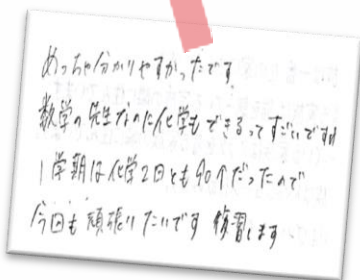 めっちゃ分かりやすかったです
数学の先生なのに化学もできるってすごいです!!
1学期は化学2回とも90个だったので
今回も頑張りたいです 復習します